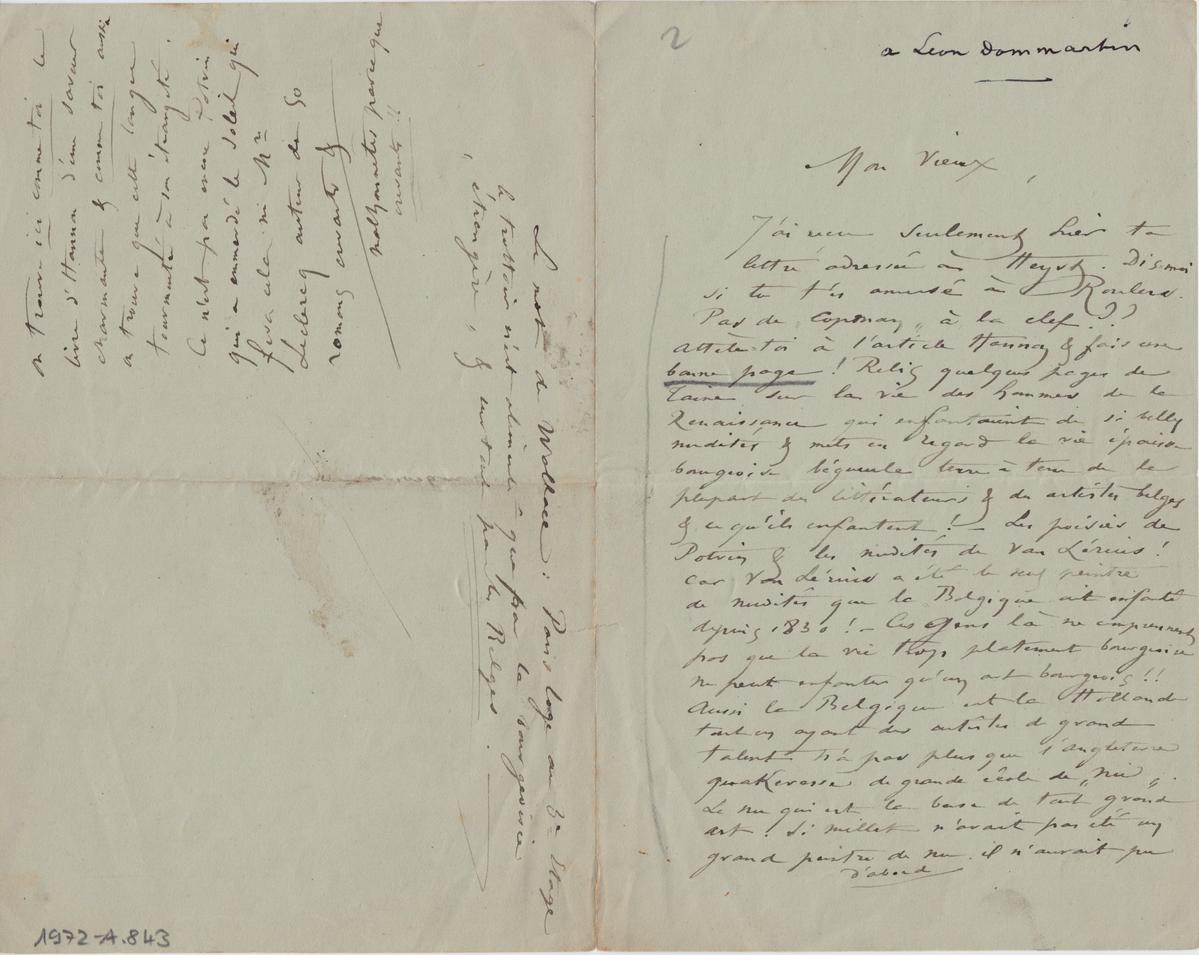 2
a Léon Dommartin
Mon Vieux,
J'ai reçu seulement hier ta
lettre adressée à Heyst. Dis moi
si tu t'es amusé à Roulers.
Pas de "Coponay" à la clef??
Attèle-toi à l'article Hannon & fais une
bonne page! Relis quelques pages de
Taine sur la vie des hommes de la
Renaissance qui enfantaient de si belles
nudités & mets en regard la vie épaisse
bourgeoise bégueule terre à terre de la
plupart des littérateurs & des artistes belges
& ce qu'ils enfantent! - Les poésies de
Potvin & les nudités de Van Lérius!
car Van Lérius a été le seul peintre
de nudités que la Belgique ait enfanté
depuis 1830! - Ces gens là ne comprennent
pas que la vie trop platement bourgeoise
ne peut enfanter qu'un art bourgeois!!
Aussi la Belgique et la Hollande
tout en ayant des artistes de grand
talent n'a pas plus que l'angleterre
quakeresse de grande école de "nu".
Le nu qui est la base de tout grand
art! Si millet n'avait pas été un
grand peintre de nu il n'aurait pu
d'abord
Le mot de Wallace: Paris loge au 3e Etage
le trottoir n'est alimenté que par la bourgeoisie
"étrangère, & surtout par les Belges.
on trouve ici comme toi le
livre d'Hannon d'une saveur
charmante & comme toi aussi
a trouvé que cette langue
tourmentée a son étrangeté.
Ce n'est pas encore Potvin
qui a emmerdé le soleil qui
fera cela ni Mr
Leclercq auteur de 50
romans vivants &
malhonnêtes parce que
vivants!!
1972-A.843